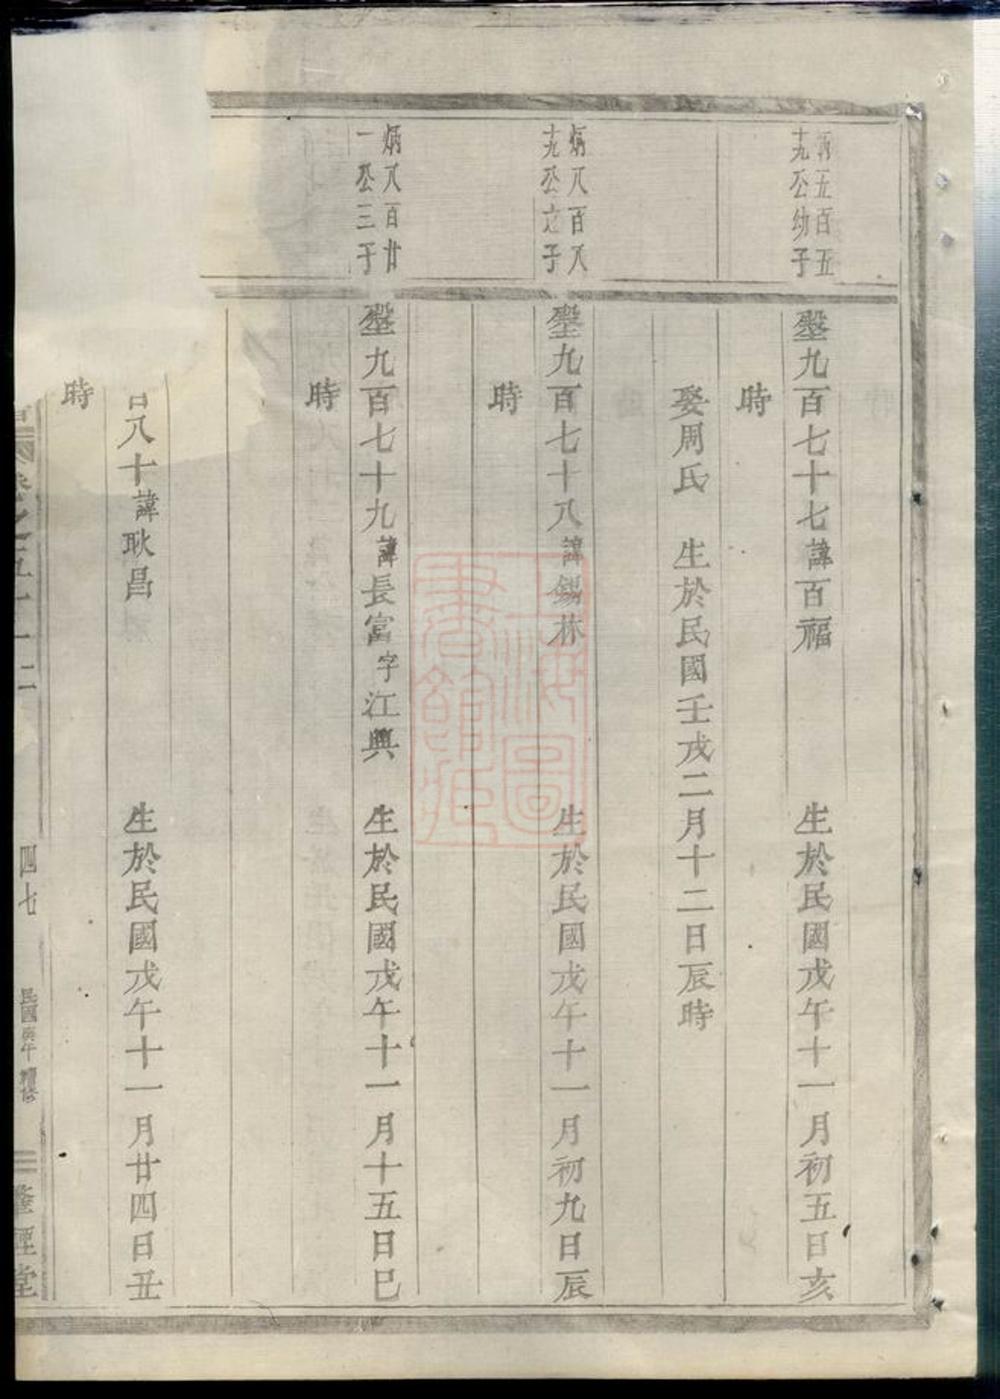 炳五百五
十九公幼子
壑九百七十七諱百福 生於民國戊午十一月初五日亥
時
娶周氏 生於民國壬戌二月十二日辰時
炳八百八
十九公之子
壑九百七十八諱錫林 生於民國戊午十一月初九日辰
時
炳八百廿
一公三子
壑九百七十九諱長富字江興 生於民國戊午十一月十五日巳
時
八十諱耿昌 生於民國戊午十一月廿四日丑
時
四七
民國 續修
堂
上海圖書館藏